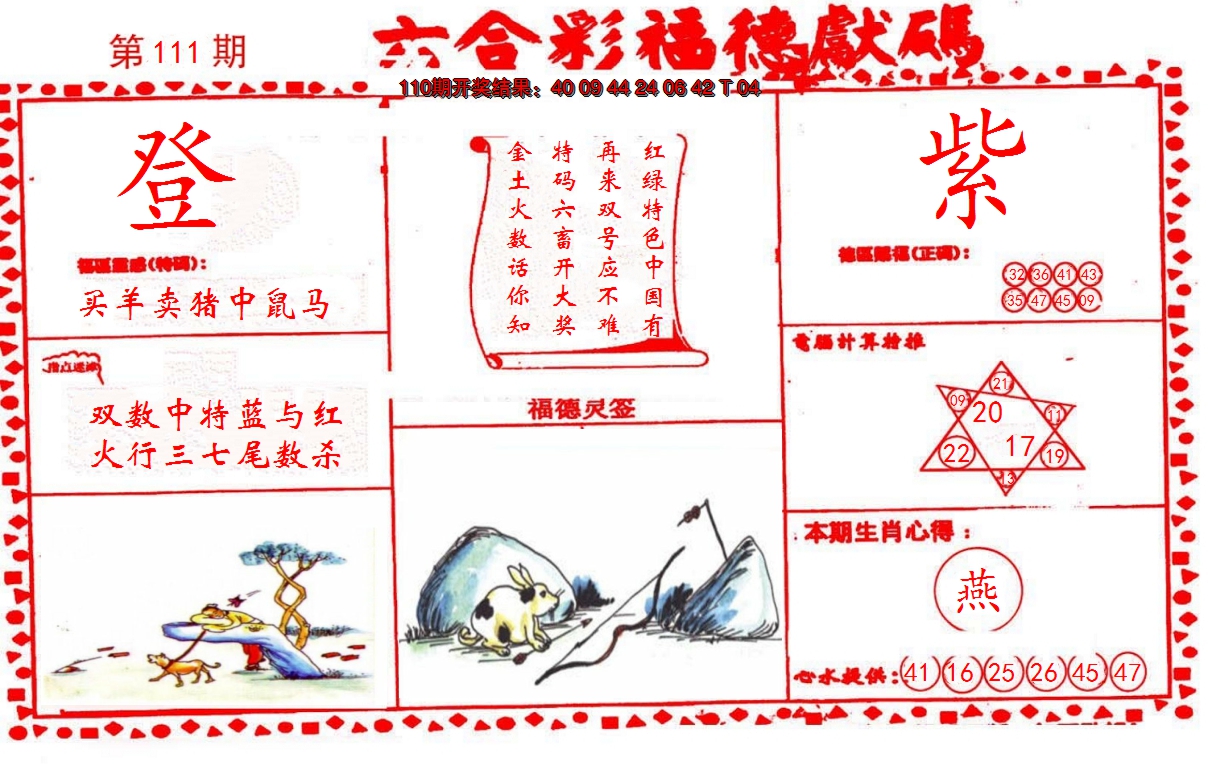 第111期
六合彩福德獻碼
110期开奖结果：40 09 44 24 06 42 T 04
登
福區靈感(特碼)：
买羊卖猪中鼠马
指点迷津
双数中特蓝与红
火行三七尾数杀
红绿特色中国有
再来双号应不难
特码六畜开大奖
金土火数话你知
福德灵签
紫
德區賜福(正碼)：
32 36 41 43
35 47 45 09
電腦計算推
21
09 20 11
22 17 19
13
本期生肖心得：
燕
心水提供：41 16 25 26 45 47